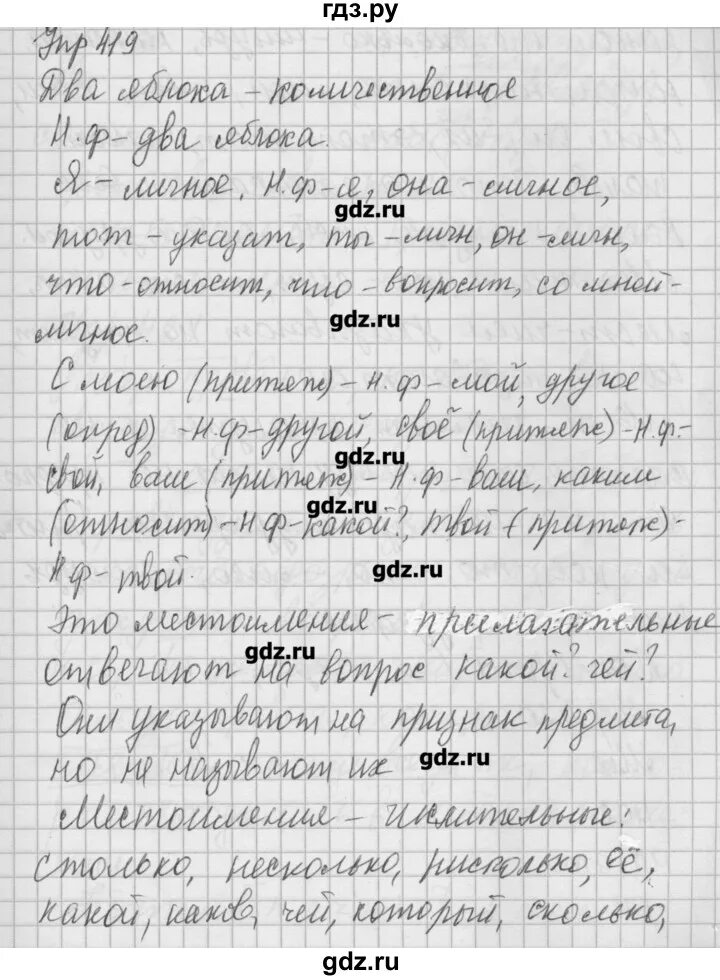 гдз.ру
Упр 419
Два яблока – количественное
Н.ф – два яблока.
Я – личное, Н.ф – я, она – личное,
gdz.ru
тот – указат, ты – личн, он – личн,
что – относит, что – вопросит, со мной –
gdz.ru
личное.
С моею (притяж) – н.ф – мой, другое
(опред) – н.ф – другой, своё (притяж) – н.ф –
gdz.ru
свой, ваш (притяж) – н.ф – ваш, каким
gdz.ru
(относит) – н ф – какой?, твой (притяж) –
н.ф – твой.
gdz.ru
Это местоимения – прилагательные
отвечают на вопрос какой? чей?
gdz.ru
Они указывают на признак предмета,
но не называют их
gdz.ru
Местоимения – числительные:
столько, несколько, нисколько, её,
какой, каков, чей, который, сколько,
gdz.ru